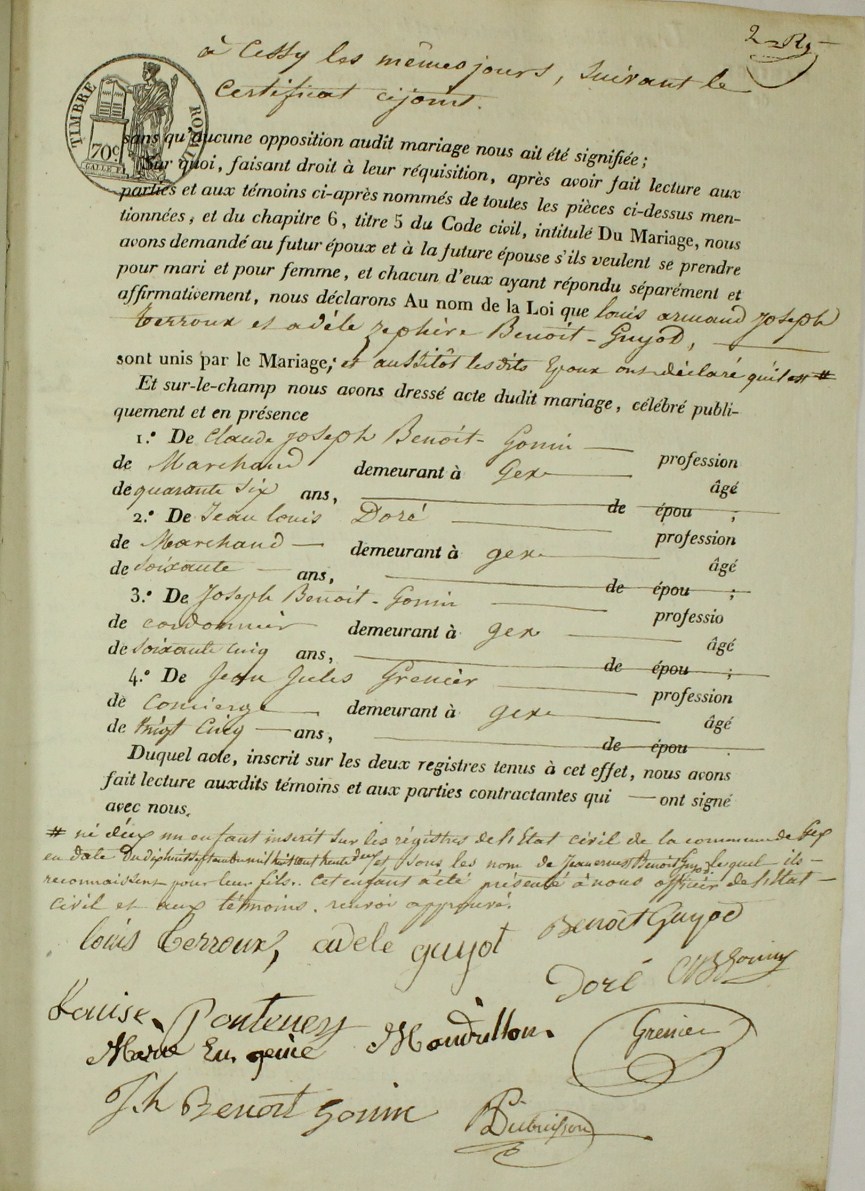 2
à Cessy les mêmes jours, suivant le
certificat cijoint.
TIMBRE ROYAL
70c
sans qu'aucune opposition audit mariage nous ait été signifiée ;
Sur quoi, faisant droit à leur réquisition, après avoir fait lecture aux
parties et aux témoins ci-après nommés de toutes les pièces ci-dessus men-
tionnées, et du chapitre 6, titre 5 du Code civil, intitulé Du Mariage, nous
avons demandé au futur époux et à la future épouse s'ils veulent se prendre
pour mari et pour femme, et chacun d'eux ayant répondu séparément et
affirmativement, nous déclarons Au nom de la Loi que louis armand Joseph
terroux et adèle zephire Benoit-Guyod,
sont unis par le Mariage; et aussitôt lesdits Epoux ont déclaré qu'il est #
Et sur-le-champ nous avons dressé acte dudit mariage, célébré publi-
quement et en présence
1.° De Claude Joseph Benoit-Gonin profession
de Marchand demeurant à Gex âgé
de quarante six ans, de épou ;
2.° De Jean louis Doré profession
de Marchand demeurant à gex âgé
de soixante ans, de épou ;
3.° De Joseph Benoit-Gonin professio
de cordonnier demeurant à gex âgé
de soixante cinq ans, de épou ;
4.° De Jean Jules Grenier profession
de Concierge demeurant à gex âgé
de vingt cinq ans, de épou
Duquel acte, inscrit sur les deux registres tenus à cet effet, nous avons
fait lecture auxdits témoins et aux parties contractantes qui ont signé
avec nous.
# né d'eux un enfant inscrit sur les régistres de l'Etat civil de la commune de Gex
en date du dixhuit septembre mil huit cent trente deux et sous les nom de Jean ernest Benoit Guyod lequel ils
reconnaissent pour leur fils. Cet enfant a été présenté à nous officier de l'Etat
civil et aux témoins. renvoi approuvé.
louis terroux, adele guyot Benoit Guyod
Doré CJB Gonin
Louise Ponteney
Marie Eugenie Mandrillon. Grenier
Jh Benoit Gonin Dubuisson